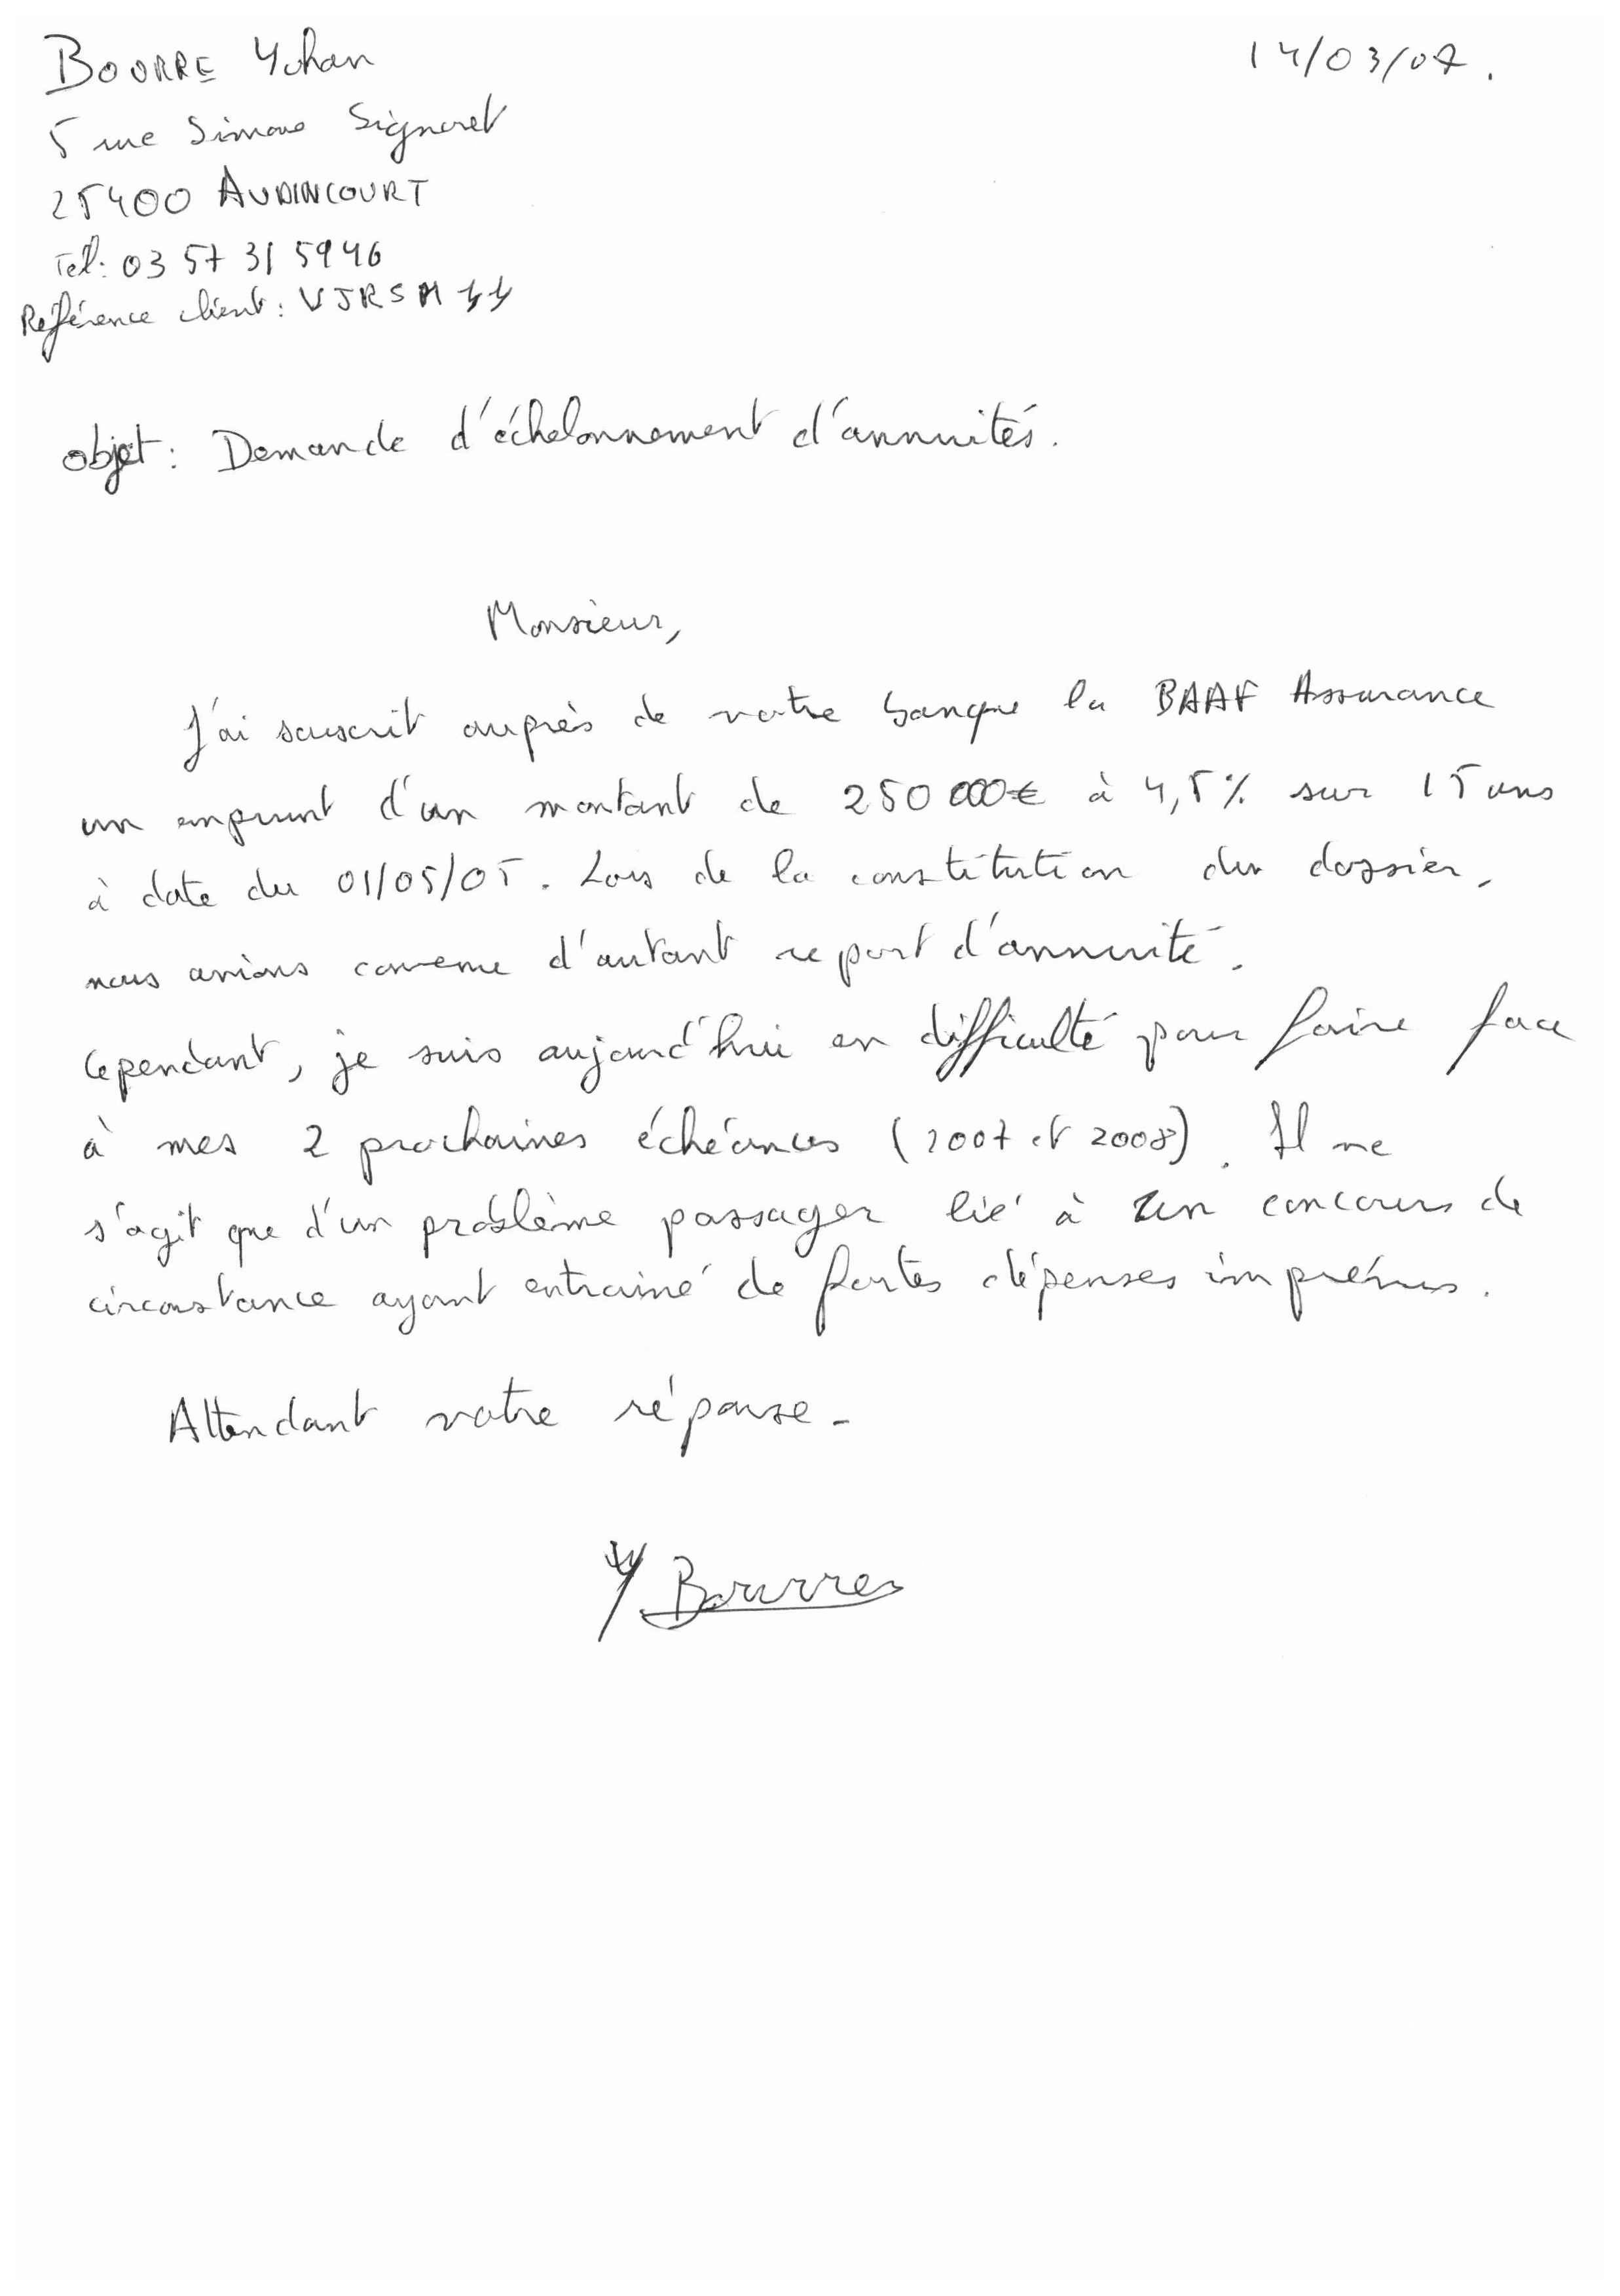 BOURRE Yohan
14/03/07.
5 rue Simone Signoret
25400 AUDINCOURT
Tel: 03 57 31 59 46
Référence client: VJRSM
objet: Demande d'échelonnement d'annuités.
Monsieur,
J'ai souscrit auprès de votre banque la BAAF Assurance
un emprunt d'un montant de 250 000€ à 4,5% sur 15 ans
à date du 01/05/05. Lors de la constitution du dossier,
nous avions convenu d'autant report d'annuité.
Cependant, je suis aujourd'hui en difficulté pour faire face
à mes 2 prochaines échéances (2007 et 2008). Il ne
s'agit que d'un problème passager lié à un concours de
circonstance ayant entrainé de fortes dépenses imprévus.
Attendant votre réponse.
Y Bourre